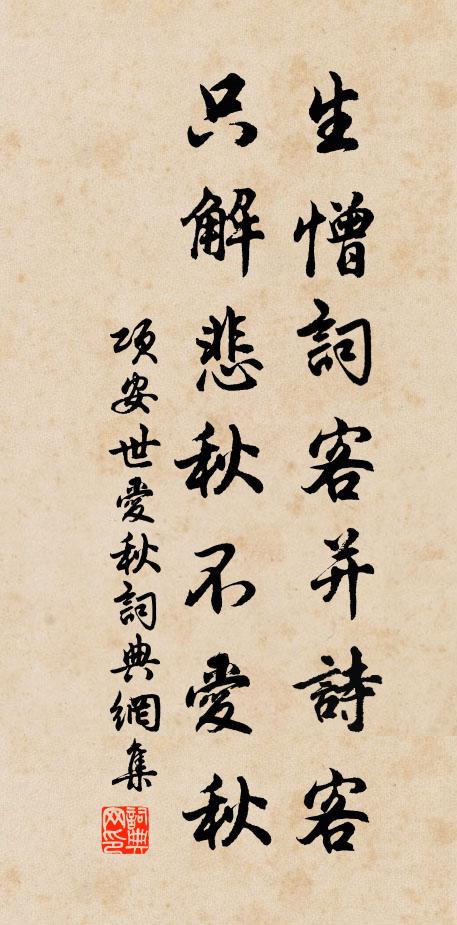 生憎詞客并詩客
只解悲秋不愛秋
項安世愛秋詞典網集
詞典网印